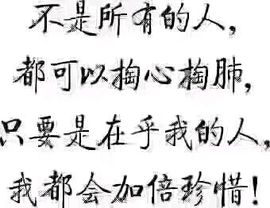 不是所有的人，
都可以掏心掏肺，
只要是在乎我的人，
我都会加倍珍惜！